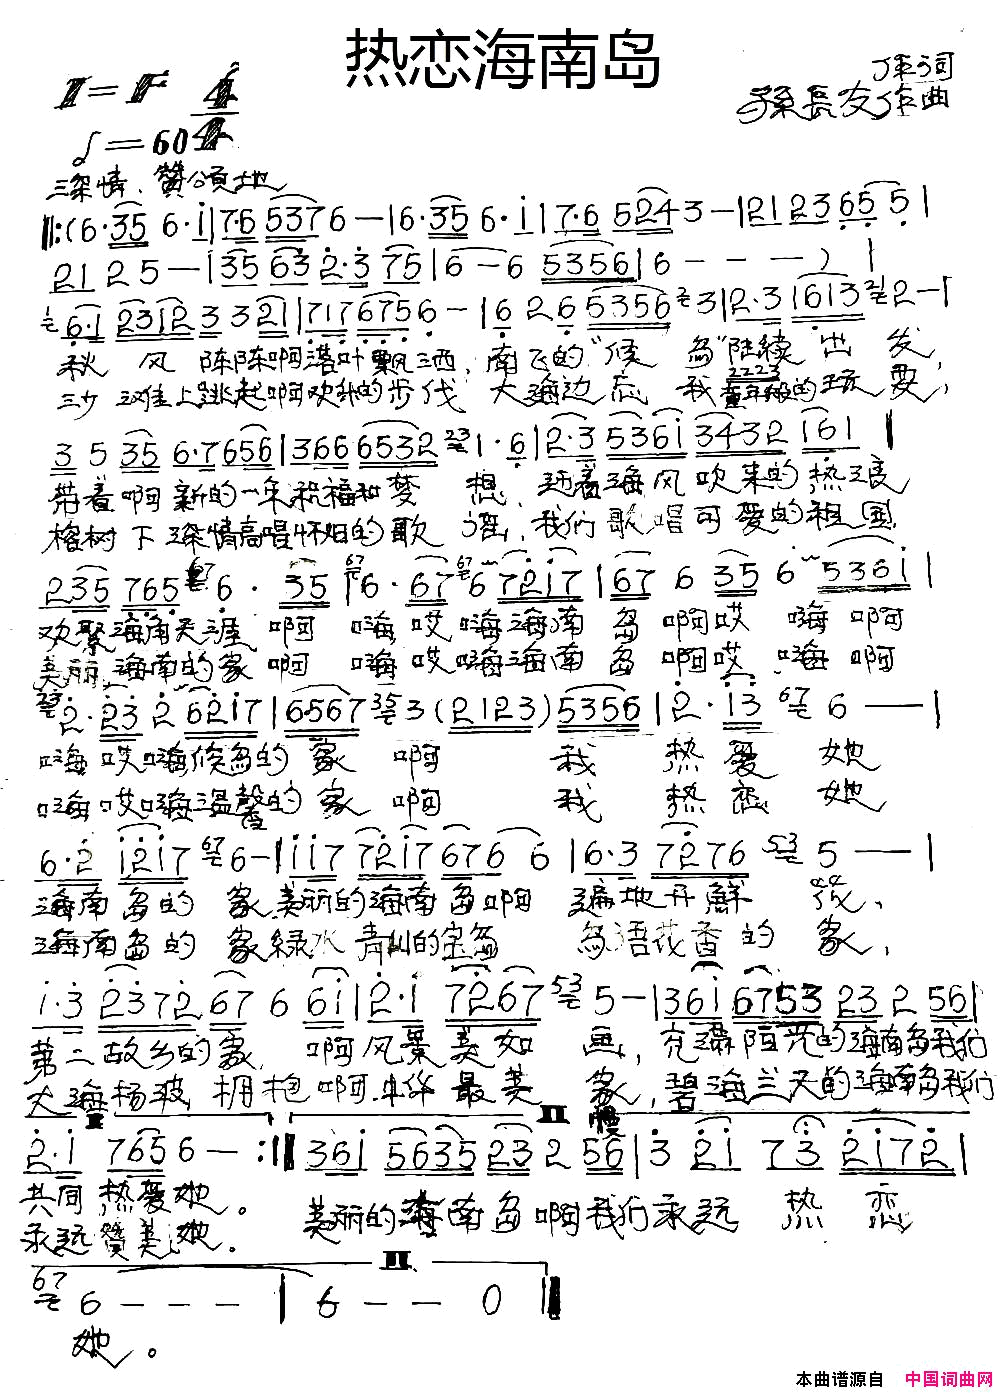 热恋海南岛
1=F 4/4
作词
孫長友作曲
♩=60
深情、贊頌地
‖:(6·35 6·i|7·6 5376—|6·35 6·i|7·6 5243—|2123 65 5|
2125—|35 63 2·3 75|6—6 5356|6———)|
6·1 2312 3 321|717 6756—|6 2 6 5356 3|2·3 1613 2—|
秋风陈陈啊落叶飘洒,南飞的"候鸟"陆续出发,
沙滩上跳起啊欢乐的步伐 大海边忘我童年般的玩耍,
3 5 35 6·7 656|366 6532 1·6|2·3 536i 3432 161|
带着啊新的一年祝福和梦想,迎着海风吹来的热浪
榕树下深情高唱怀旧的歌谣,我们歌唱可爱的祖国
235 765 6· 35|6·67 6 72i7|67 6 35 6 536i|
欢聚海南天涯啊 嗨哎嗨海南岛啊哎嗨啊
美丽海南的家啊 嗨哎嗨海南岛啊哎嗨啊
2·23 2 62i7|6·567 3(2123)5356|2·i3 6——|
嗨哎嗨候鸟的家啊 我热爱她
嗨哎嗨温馨的家啊 我热恋她
6·2 i2i7 6—|ii7 72i7 676 6|6·3 7276 5——|
海南岛的家美丽的海南岛啊 遍地开鲜花、
海南岛的家緑水青山的宝岛 鸟语花香的家,
i·3 2372 67 6 6i|2·i 7267 5—|36i 6753 23 2 56|
第二故乡的家,啊风景美如画,充满阳光的海南岛我们
大海杨波,拥抱啊中华最美家,碧海兰天的海南岛我们
2·i 765 6—:‖36i 5635 23 2 56|3 2i 7 3 2i72|
共同热爱她。 美丽的海南岛啊我们永远热恋
永远赞美她。
6———|6——0‖
她。
本曲谱源自 中国词曲网